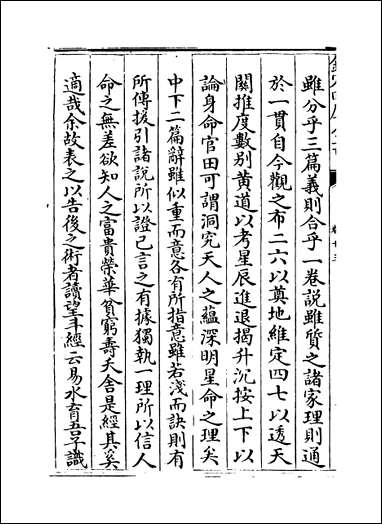 雖分乎三篇義則合乎一卷說雖質之諸家理則通
於一貫自今觀之布二六以奠地維定四七以透天
關推度數別黃道以考星辰進退揭升沉按上下以
論身命官田可謂洞究天人之藴深明星命之理矣
中下二篇辭雖似重而意各有所指意雖若淺而訣則有
所傳援引諸說所以證已言之有據獨執一理所以信人
命之無差欲知人之富貴榮華貧窮壽夭舍是經其奚
適哉余故表之以告後之術者讀望斗經云易水育吾子識